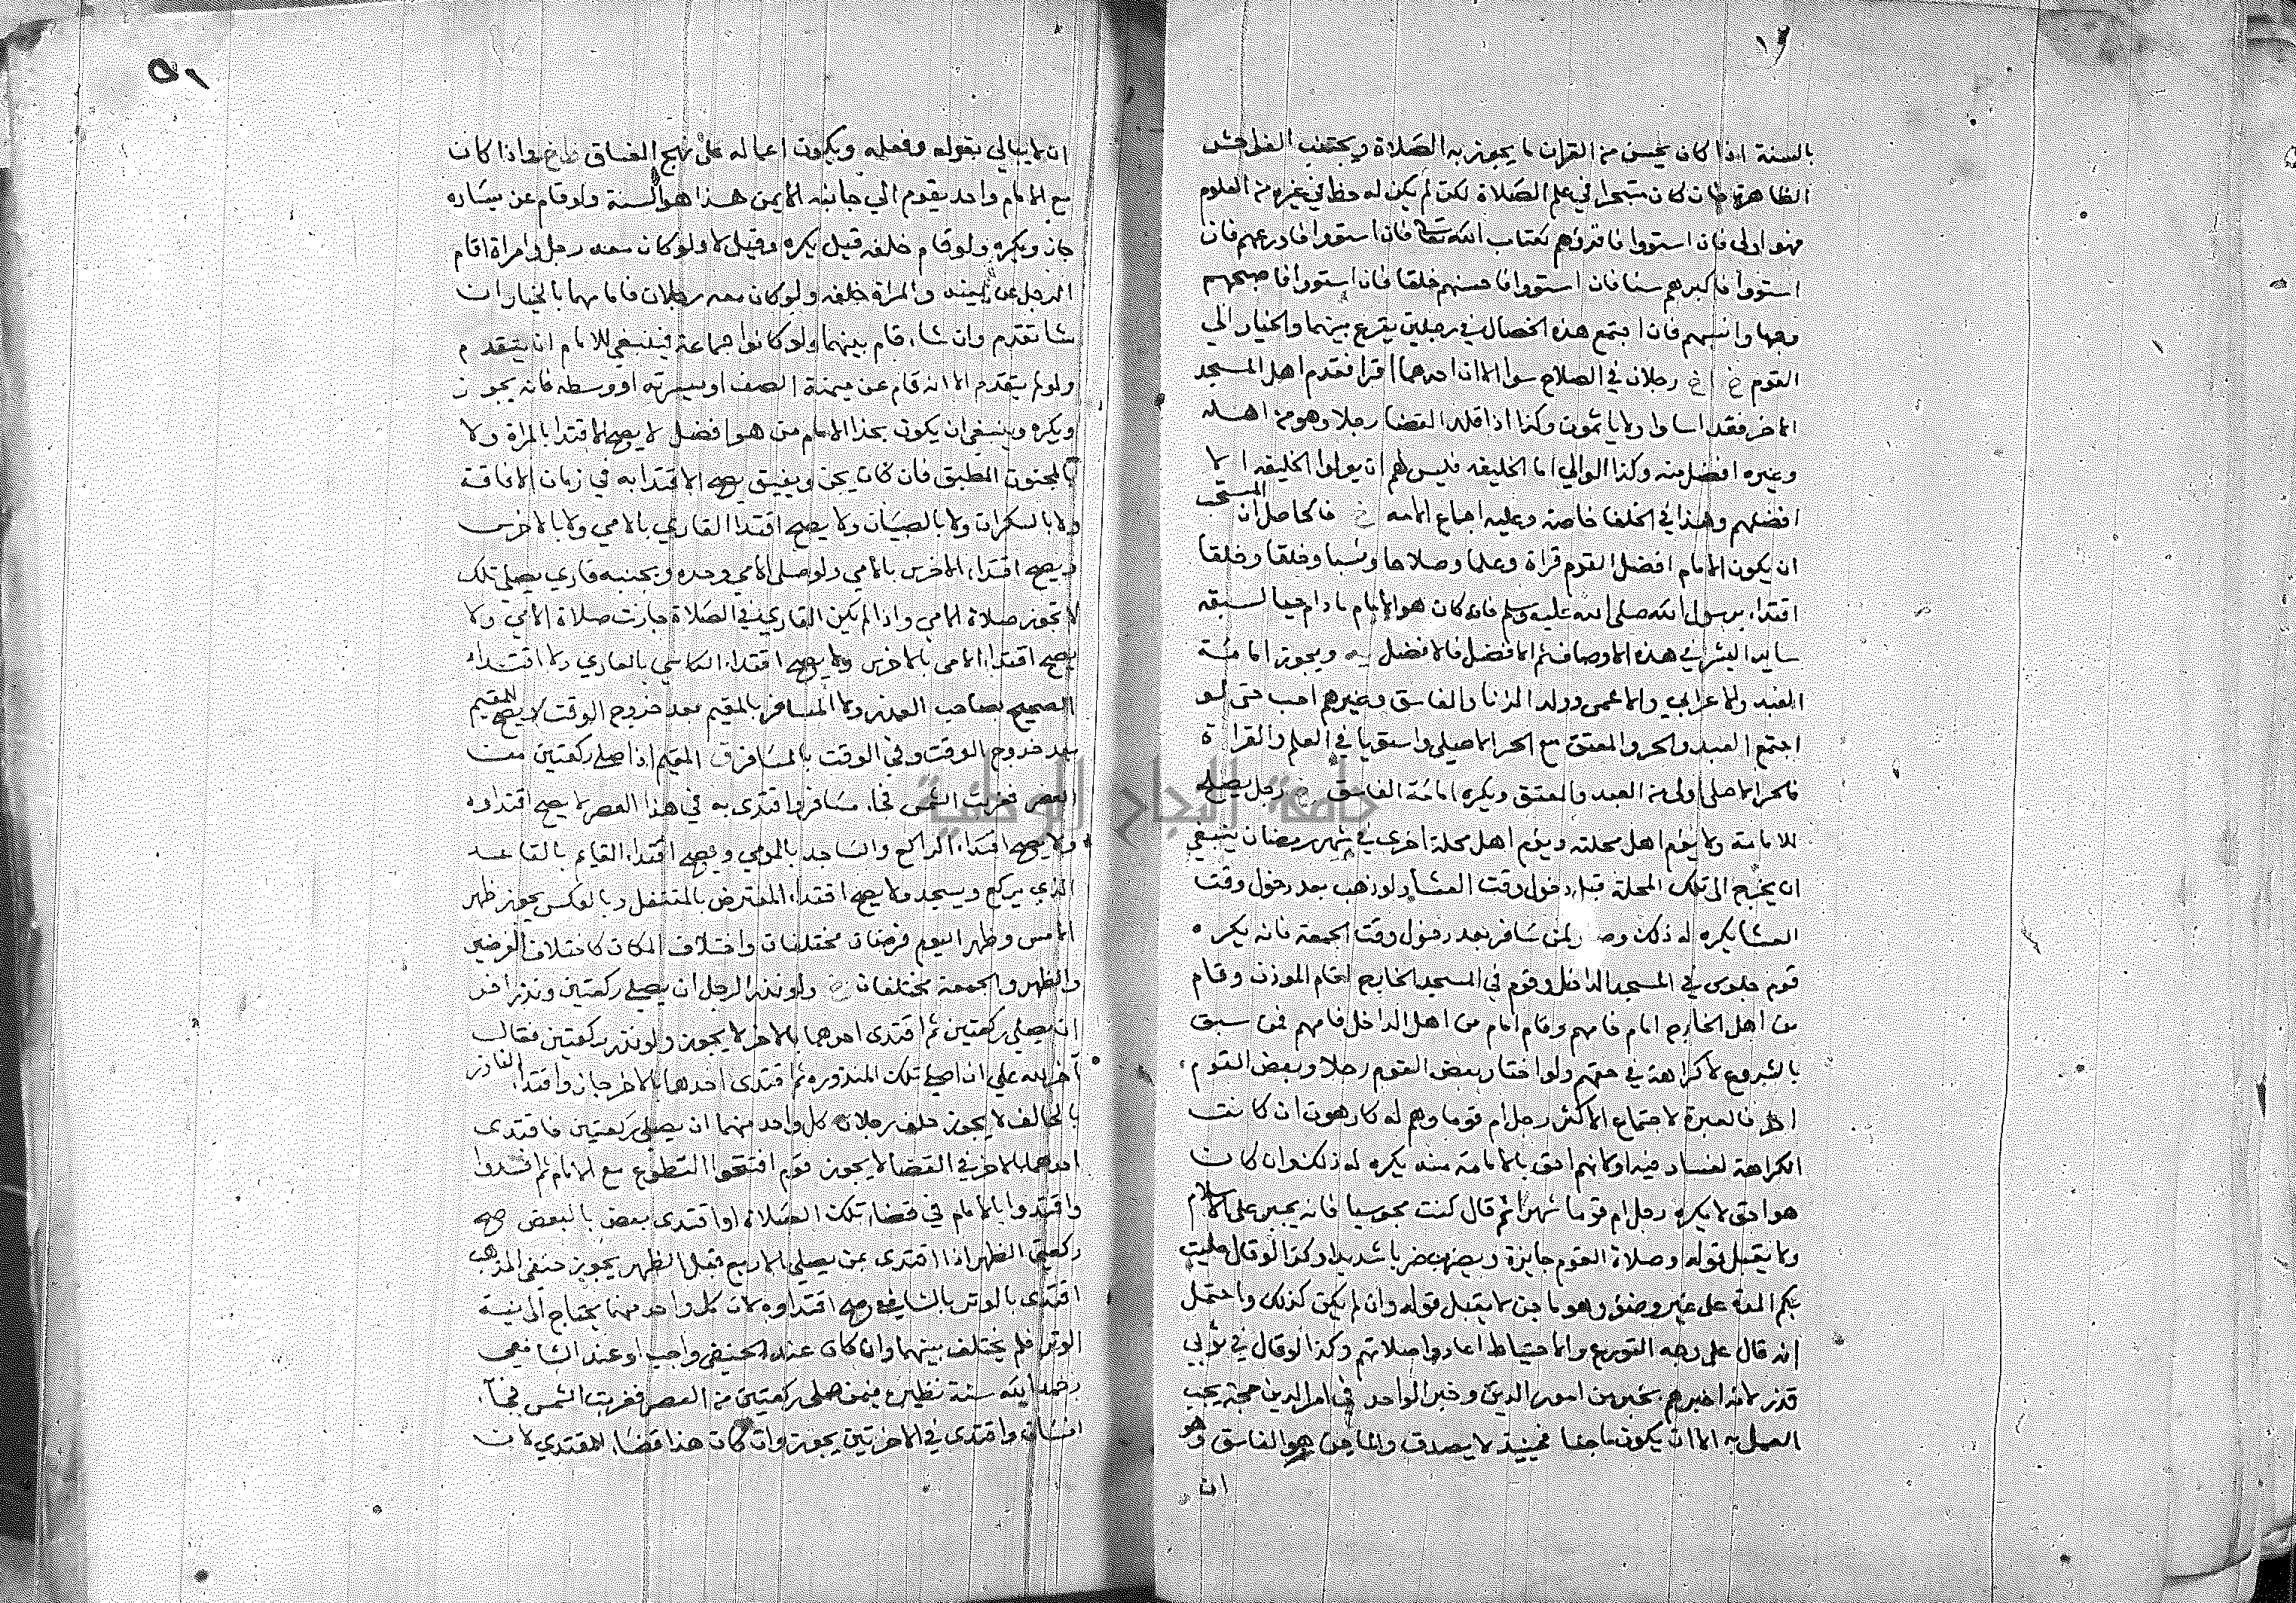 ١٢
بالسنة اذا كان يحسن من القران ما يجوز به الصلاة ويجتنب الفواحش
الظاهرة فان كان متبحرا في علم الصلاة لكن لم يكن له حظ في غيره من العلوم
فهو اولى فان استووا فاقرؤهم لكتاب الله تعالى فان استووا فاورعهم فان
استووا فاكبرهم سنا فان استووا فاحسنهم خلقا فان استووا فاصبحهم
وجها وانسبهم فان اجتمع هذه الخصال في رجلين يقرع بينهما والخيار الي
القوم رجلان في الصلاح سوا الا ان احدهما اقرا فقدم اهل المسجد
الاخر فقد اساوا ولا ياثمون وكذا اذا قلد القضا رجلا وهو من اهله
وغيره افضل منه وكذا الوالي اما الخليفه فليس لهم ان يولوا الخليفه الا
افضلهم وهذا في الخلفا خاصة وعليه اجماع الامه فالحاصل ان المستحب
ان يكون الامام افضل القوم قراة وعلما وصلاحا ونسبا وخلقا وخلقا
اقتداء برسول الله صلى الله عليه وسلم فانه كان هو الامام ما دام حيا لسبقه
ساير البشر في هذه الاوصاف ثم الافضل فالافضل ويجوز امامة
العبد والاعرابي والاعمى وولد الزنا والفاسق وغيرهم احب حتى لو
اجتمع العبد والحر والمعتق مع الحر الاصلي واستويا في العلم والقراة
فالحر الاصلي اولى من العبد والمعتق ويكره امامة الفاسق رجل يصلح
للامامة ولا يؤم اهل محلته ويؤم اهل محلة اخرى في شهر رمضان ينبغي
ان يخرج الى تلك المحلة قبل دخول وقت العشا ولو ذهب بعد دخول وقت
العشا يكره له ذلك كمن سافر بعد دخول وقت الجمعة فانه يكره
قوم جلوس في المسجد الداخل وقوم في المسجد الخارج اقام الموذن وقام
من اهل الخارج امام فامهم وقام امام من اهل الداخل فامهم فمن سبق
بالشروع لا كراهة في حقهم ولو اختار بعض القوم رجلا وبعض القوم
اخر فالعبرة لاجتماع الاكثر رجل ام قوما وهم له كارهون ان كانت
الكراهة لفساد فيه او كانهم احق بالامامة منه يكره له ذلك وان كان
هو احق لا يكره رجل ام قوما شهرا ثم قال كنت مجوسيا فانه يجبر على الاسلام
ولا يقبل قوله وصلاة القوم جايزة ويضرب ضربا شديدا وكذا لو قال صليت
بكم المدة على غير وضوء وهو ماجن لا يقبل قوله وان لم يكن كذلك واحتمل
انه قال على وجه التورع والاحتياط اعادوا صلاتهم وكذا لو قال في ثوبي
قذر لانه اخبرهم بخبر من امور الدين وخبر الواحد في امر الدين حجة يجب
العمل به الا ان يكون ماجنا فحينيذ لا يصدق والماجن هو الفاسق وهو
ان
ان لا يبالي بقوله وفعله ويكون اعماله على نهج الفساق واذا كان
مع الامام واحد يقوم الي جانبه الايمن هذا هو السنة ولو قام عن يساره
جاز ويكره ولو قام خلفه قيل يكره وقيل لا ولو كان معه رجل وامراة اقام
الرجل عن يمينه والمراة خلفه ولو كان معه رجلان فامامهما بالخيار ان
شا تقدم وان شاء قام بينهما ولو كانوا جماعة فينبغي للامام ان يتقدم
ولو لم يتقدم الا انه قام عن ميمنة الصف او ميسرته او وسطه فانه يجوز
ويكره وينبغي ان يكون بحذا الامام من هو افضل لا يصح الاقتدا بالمراة ولا
بالمجنون المطبق فان كان يجن ويفيق يصح الاقتدا به في زمان الافاقة
ولا بالسكران ولا بالصبيان ولا يصح اقتدا القاري بالامي ولا بالاخرس
ويصح اقتداء الاخرس بالامي ولو صلى الامي وحده وبجنبه قاري يصلي تلك
لا تجوز صلاة الامي واذا لم يكن القاري في الصلاة جازت صلاة الامي ولا
يصح اقتداء الامي بالاخرس ولا يصح اقتداء الكاسي بالعاري ولا اقتداء
الصحيح بصاحب العذر ولا المسافر بالمقيم بعد خروج الوقت لا يصح للمقيم
بعد خروج الوقت وفي الوقت بالمسافر المقيم اذا صلى ركعتين من
العصر فغربت الشمس فجاء مسافر واقتدى به في هذا العصر لا يصح اقتداوه
ولا يصح اقتداء الراكع والساجد بالمومي ويصح اقتداء القايم بالقاعد
الذي يركع ويسجد ولا يصح اقتداء المفترض بالمتنفل وبالعكس يجوز ظهر
الامس وظهر اليوم فرضان مختلفان واختلاف المكان كاختلاف الفرضين
والظهر والجمعة مختلفان ولو نذر الرجل ان يصلي ركعتين ونذر اخر
ان يصلي ركعتين ثم اقتدى احدهما بالاخر لا يجوز ولو نذر ركعتين فقال
آخر لله علي ان اصلي تلك المنذوره ثم اقتدى احدهما بالاخر جاز واقتداء الناذر
بالحالف لا يجوز حلف رجلان كل واحد منهما ان يصلي ركعتين فاقتدى
احدهما بالاخر في القضا لا يجوز قوم افتتحوا التطوع مع الامام ثم افسدوا
واقتدوا بالامام في قضاء تلك الصلاة او اقتدى بعض بالبعض صح
ركعتي الظهر اذا اقتدى بمن يصلي الاربع قبل الظهر يجوز حنفي المذهب
اقتدى بالوتر بالشافعي صح اقتداوه لان كل واحد منهما يحتاج الى نية
الوتر فلم يختلف بينهما وان كان عند الحنفي واجب او عند الشافعي
رحمه الله سنة نظيره فيمن صلى ركعتين من العصر فغربت الشمس فجاء
انسان واقتدى في الاخرتين يجوز وان كان هذا قضاء للمقتدي لان
جامعة النجاح الوطنية